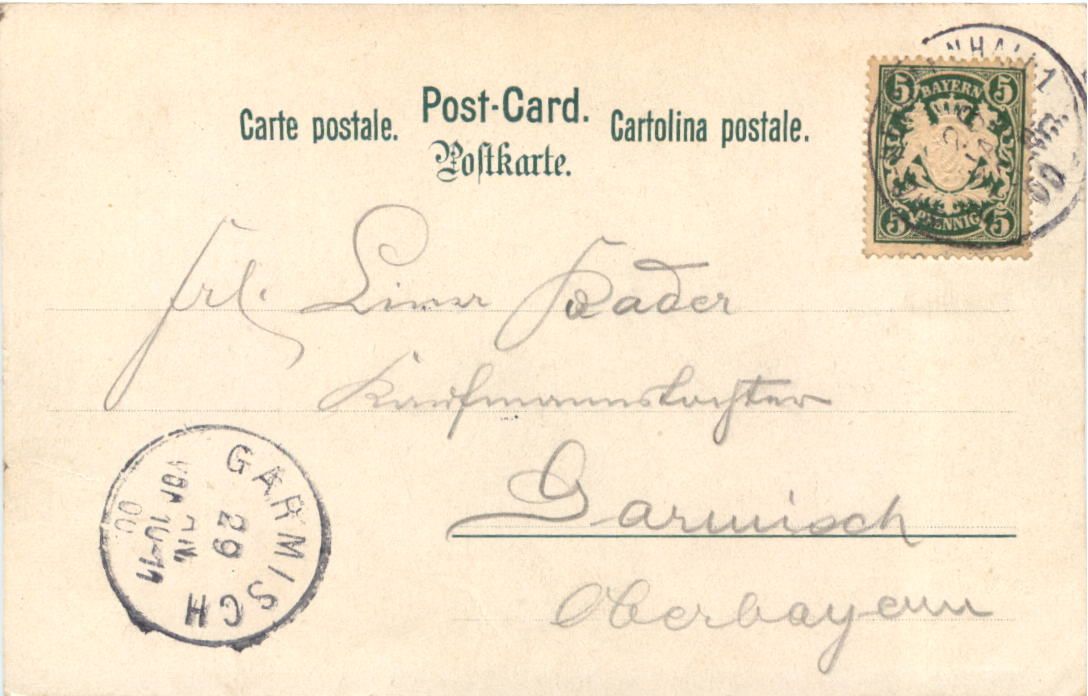 Carte postale. Post-Card. Cartolina postale.
Postkarte.
5 BAYERN 5
5 PFENNIG 5
Frl. Lina Bader
Kaufmannstochter
Garmisch
Oberbayern
GARMISCH
29
VOR 10-11
00